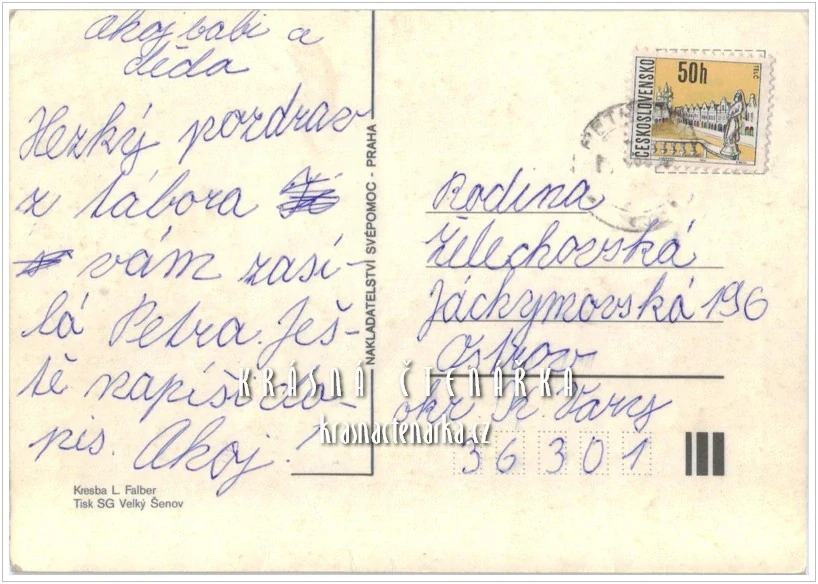 Ahoj babi a
děda
Hezký pozdrav
z tábora
vám zasí-
lá Petra. Ješ-
tě napíši do-
pis. Ahoj!
Kresba L. Falber
Tisk SG Velký Šenov
NAKLADATELSTVÍ SVÉPOMOC - PRAHA
ČESKOSLOVENSKO
50h
TELČ
Rodina
Želechovská
Jáchymovská 196
Ostrov
okr. K Vary
36301
KRÁSNÁ ČTENÁRKA
krasnactenarka.cz